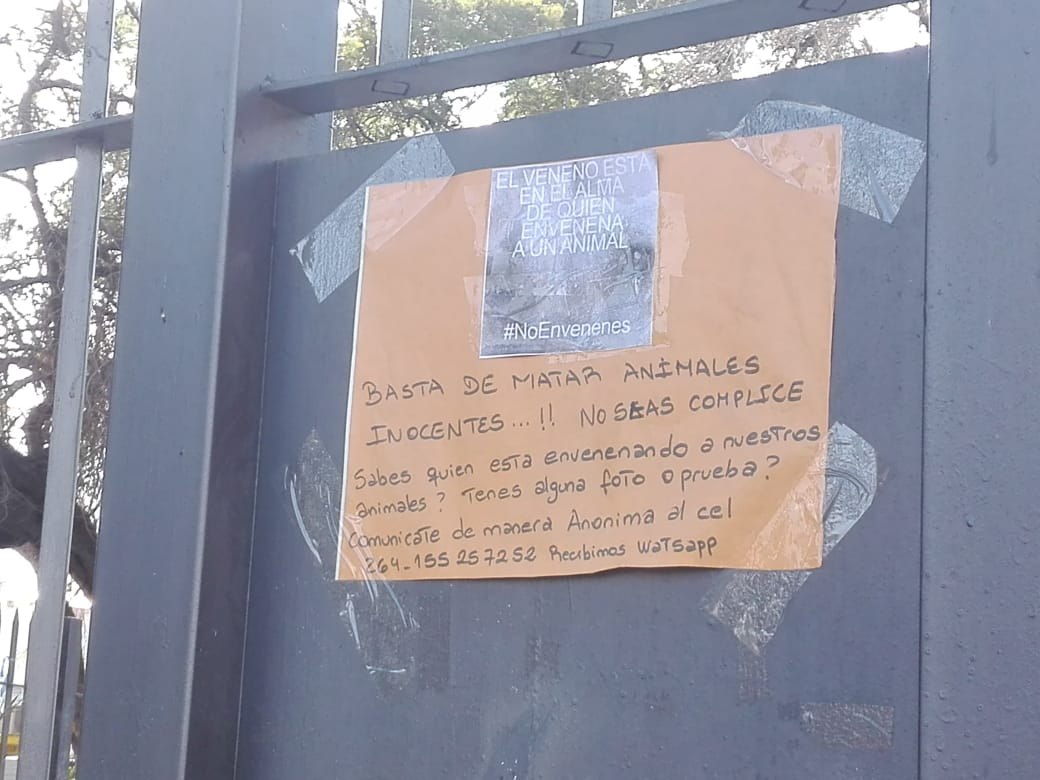 EL VENENO ESTÁ
EN EL ALMA
DE QUIEN
ENVENENA
A UN ANIMAL
#NoEnvenenes
BASTA DE MATAR ANIMALES
INOCENTES...!! NO SEAS COMPLICE
Sabes quien esta envenenando a nuestros
animales? Tenes alguna foto o prueba?
Comunicate de manera Anonima al cel
264-155257252 Recibimos WaTsapp